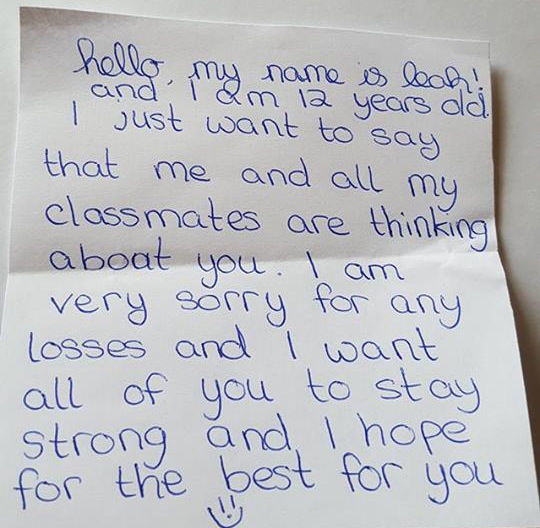 hello, my name is leah!
and I am 12 years old.
I just want to say
that me and all my
classmates are thinking
aboat you. I am
very sorry for any
losses and I want
all of you to stay
strong and I hope
for the best for you